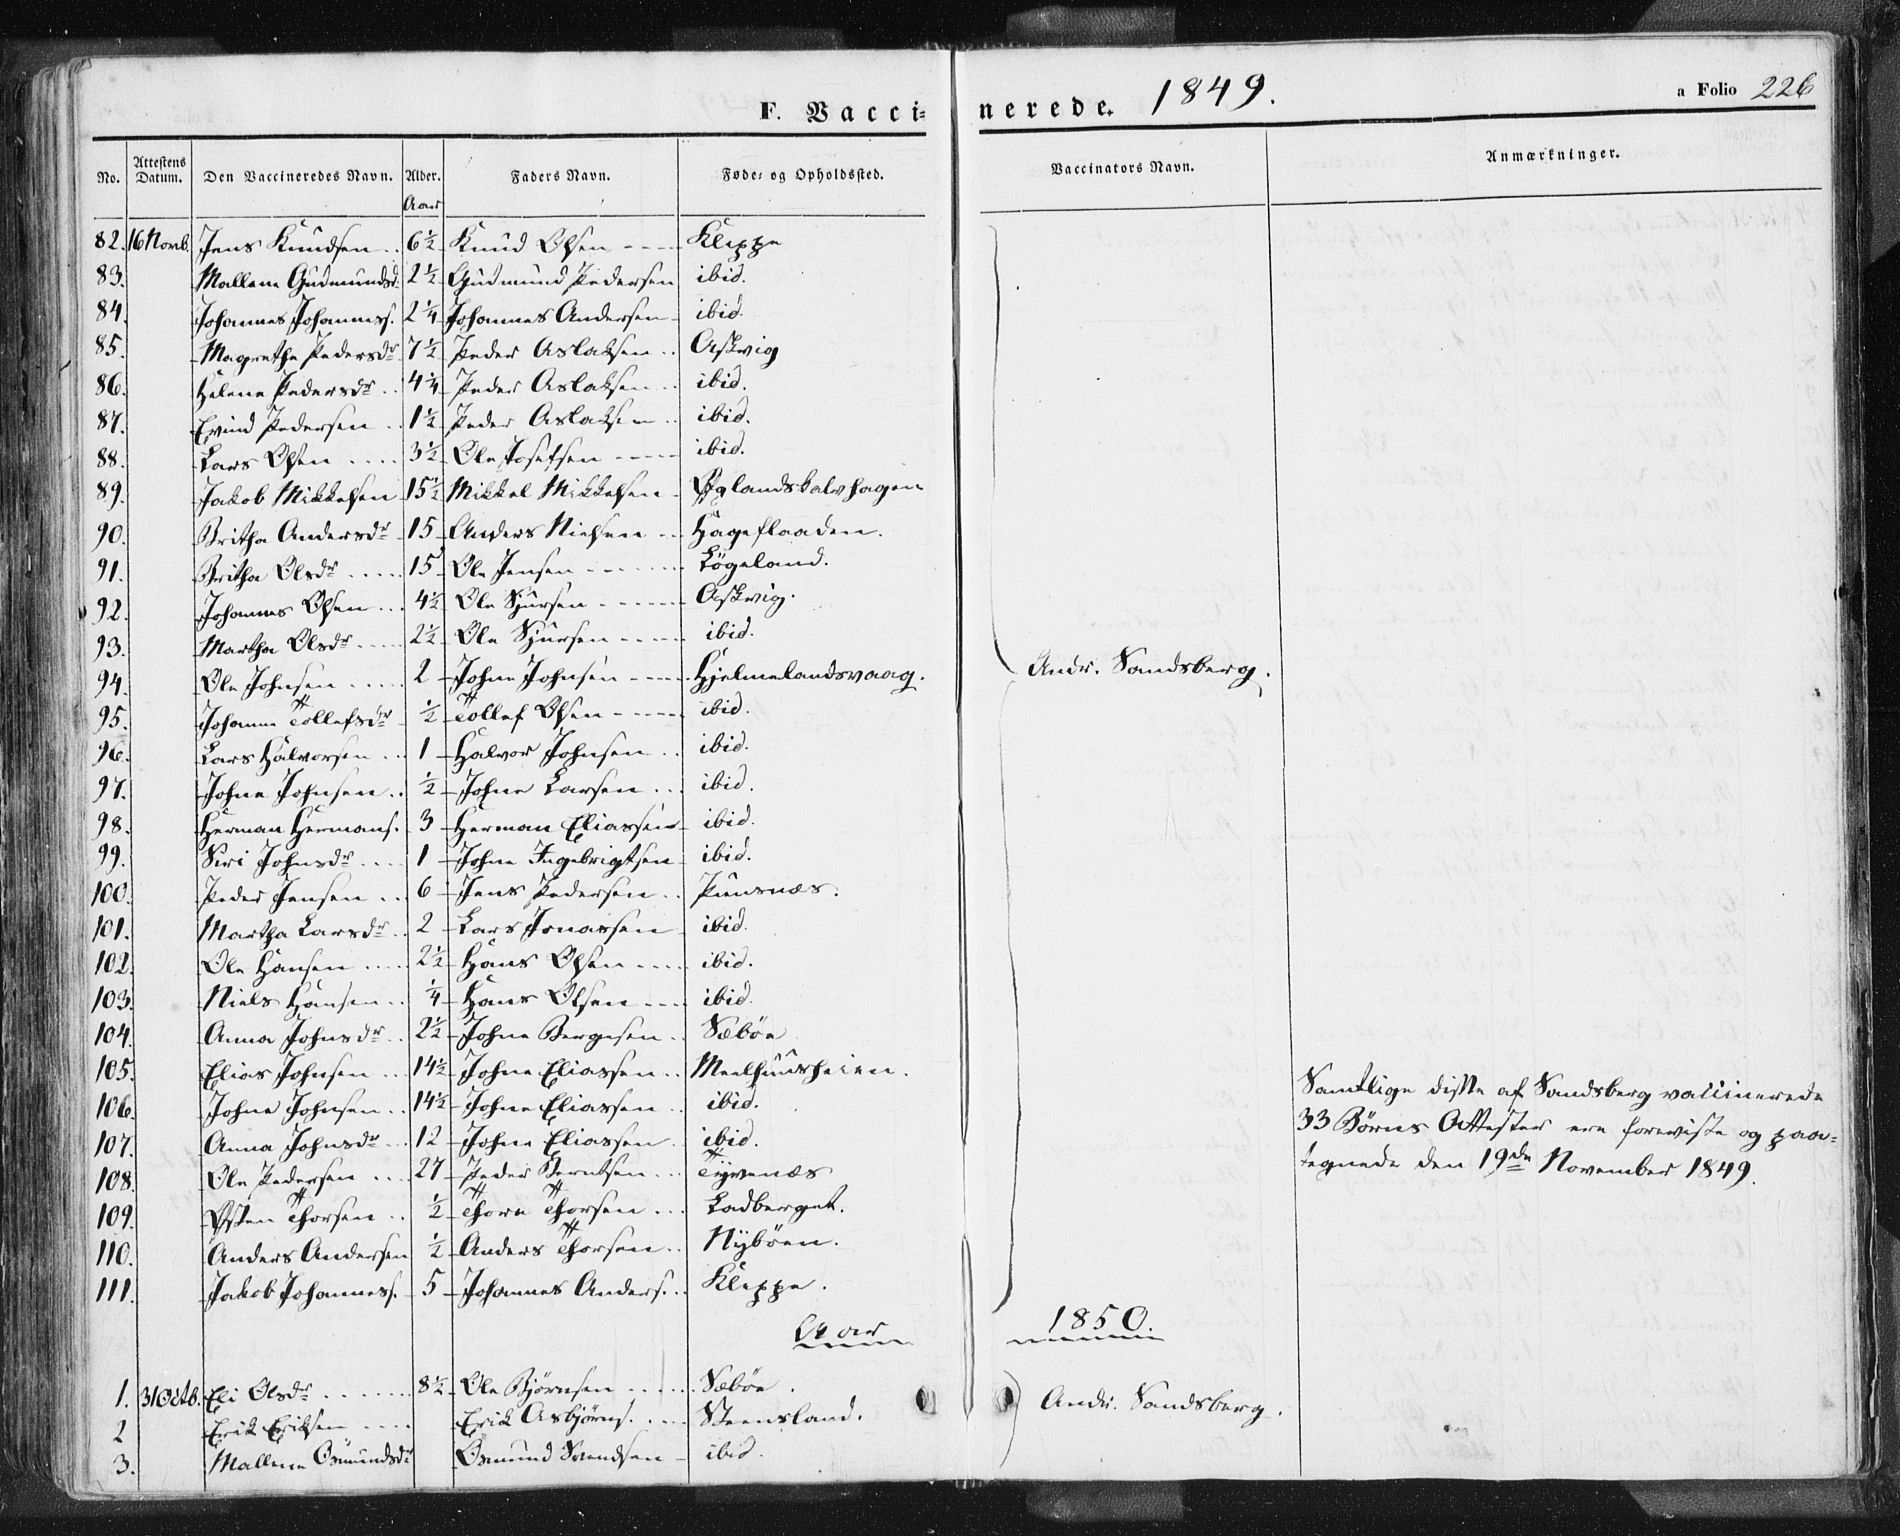 F. Vaccinerede. 1849. a Folio 226
No. Attestens Datum. Den Vaccineredes Navn. Alder. Faders Navn. Føde- og Opholdssted. Vaccinators Navn. Anmærkninger.
Aar
82. 16 Novb. Jens Knudsen .. 6½ Knud Olsen ---- Kleppe
83. Mallene Gudmundsd. 2½ Gudmund Pedersen ibid.
84. Johannes Johanness. 2¼ Johannes Andersen - ibid.
85. Magrethe Pedersdr 7½ Peder Aslaksen .. Askvig
86. Helene Pedersdr .. 4¼ Peder Aslaksen .. ibid.
87. Eyvind Pedersen .. 1½ Peder Aslaksen .. ibid.
88. Lars Olsen .... 3½ Ole Josefsen ---- ibid.
89. Jakob Mikkelsen 15½ Mikkel Mikkelsen - Øglandskalvhagen
90. Britha Andersdr 15 Anders Nielsen -- Hageflaaden.
91. Britha Olsdr ..... 15 Ole Jensen ------ Løgeland.
92. Johannes Olsen ... 4½ Ole Sjursen ------ Askvig.
93. Martha Olsdr .... 2½ Ole Sjursen ----- ibid.
94. Ole Johnsen ..... 2 Johne Johnsen ---- Hjelmelandsvaag. Andr. Sandsberg.
95. Johanne Tollefsdr ½ Tollef Olsen ----- ibid.
96. Lars Halvorsen .. 1 Halvor Johnsen .. ibid.
97. Johne Johnsen .. ½ Johne Larsen ... ibid.
98. Herman Hermans. 3 Herman Eliassen - ibid.
99. Siri Johnsdr .... 1 Johne Ingebrigtsen ibid.
100. Peder Jensen ... 6 Jens Pedersen .. Puusnæs.
101. Martha Larsdr .. 2 Lars Jonassen ibid.
102. Ole Hansen ..... 2½ Hans Olsen .... ibid.
103. Niels Hansen .. ¼ Hans Olsen .... ibid.
104. Anna Johnsdr .. 2½ Johne Bergesen .. Sæbøe
105. Elias Johnsen ... 14½ Johne Eliassen .. Meelhuusheien.
106. Johne Johnsen .. 14½ Johne Eliassen .. ibid.
107. Anna Johnsdr ... 12 Johne Eliassen . ibid.
108. Ole Pedersen ... 27 Peder Berntsen ... Tyvenæs
109. Østen Thorsen .. ½ Thore Thorsen ... Ladberget.
110. Anders Andersen ½ Anders Thorsen .. Nybøen.
111. Jakob Johanness. 5 Johannes Anders. .. Kleppe.
Samtlige disse af Sandsberg vaccinerede
33 Børns Attester ere foreviste og paa-
tegnede den 19de November 1849.
Aar 1850.
1. 31 Octb. Eli Olsdr ....... 8½ Ole Bjørnsen ..... Sæbøe. Andr. Sandsberg.
2 Erik Eriksen .... Erik Asbjørns. ... Steensland.
3. Mallene Osmundsdr Osmund Svendsen - ibid.